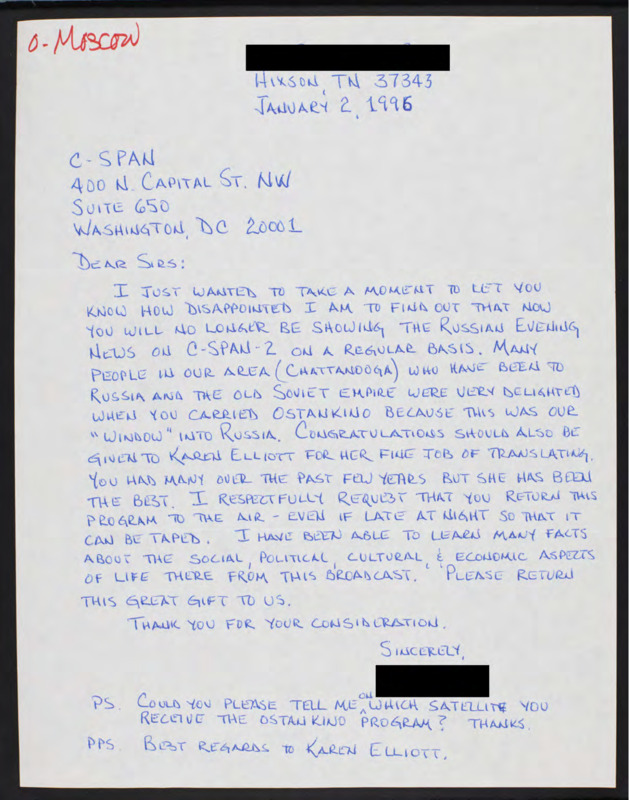 O-MOSCOW
HIXSON, TN 37343
JANUARY 2, 1996
C-SPAN
400 N. CAPITAL ST. NW
SUITE 650
WASHINGTON, DC 20001
DEAR SIRS:
I JUST WANTED TO TAKE A MOMENT TO LET YOU
KNOW HOW DISAPPOINTED I AM TO FIND OUT THAT NOW
YOU WILL NO LONGER BE SHOWING THE RUSSIAN EVENING
NEWS ON C-SPAN-2 ON A REGULAR BASIS. MANY
PEOPLE IN OUR AREA (CHATTANOOGA) WHO HAVE BEEN TO
RUSSIA AND THE OLD SOVIET EMPIRE WERE VERY DELIGHTED
WHEN YOU CARRIED OSTANKINO BECAUSE THIS WAS OUR
"WINDOW" INTO RUSSIA. CONGRATULATIONS SHOULD ALSO BE
GIVEN TO KAREN ELLIOTT FOR HER FINE JOB OF TRANSLATING.
YOU HAD MANY OVER THE PAST FEW YEARS BUT SHE HAS BEEN
THE BEST. I RESPECTFULLY REQUEST THAT YOU RETURN THIS
PROGRAM TO THE AIR - EVEN IF LATE AT NIGHT SO THAT IT
CAN BE TAPED. I HAVE BEEN ABLE TO LEARN MANY FACTS
ABOUT THE SOCIAL, POLITICAL, CULTURAL, & ECONOMIC ASPECTS
OF LIFE THERE FROM THIS BROADCAST. PLEASE RETURN
THIS GREAT GIFT TO US.
THANK YOU FOR YOUR CONSIDERATION.
SINCERELY,
PS. COULD YOU PLEASE TELL ME ON WHICH SATELLITE YOU
RECEIVE THE OSTANKINO PROGRAM? THANKS.
PPS. BEST REGARDS TO KAREN ELLIOTT.